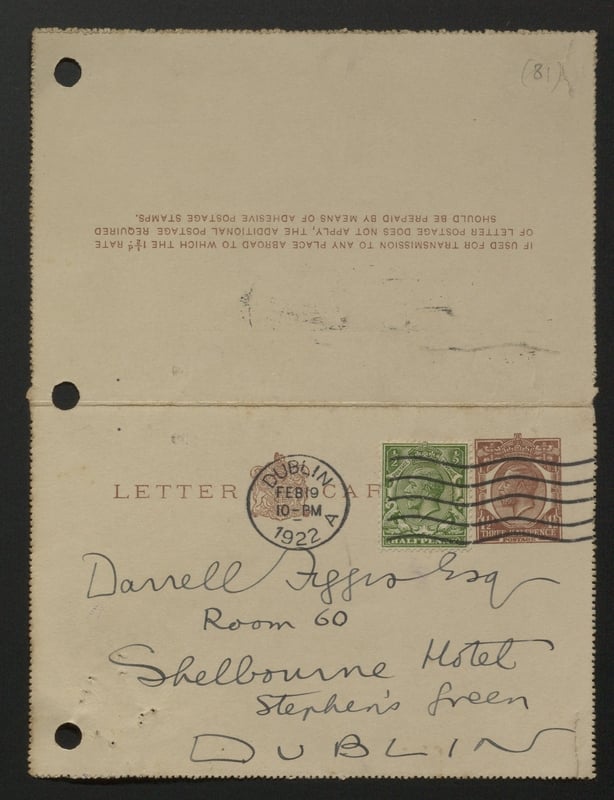 (81)
IF USED FOR TRANSMISSION TO ANY PLACE ABROAD TO WHICH THE 1½d RATE
OF LETTER POSTAGE DOES NOT APPLY, THE ADDITIONAL POSTAGE REQUIRED
SHOULD BE PREPAID BY MEANS OF ADHESIVE POSTAGE STAMPS.
LETTER CAR
DUBLIN
FEB 19
10-PM
1922 A
HALFPENNY
THREE HALFPENCE
POSTAGE
Darrell Figgis Esq
Room 60
Shelbourne Hotel
Stephen's Green
DUBLIN